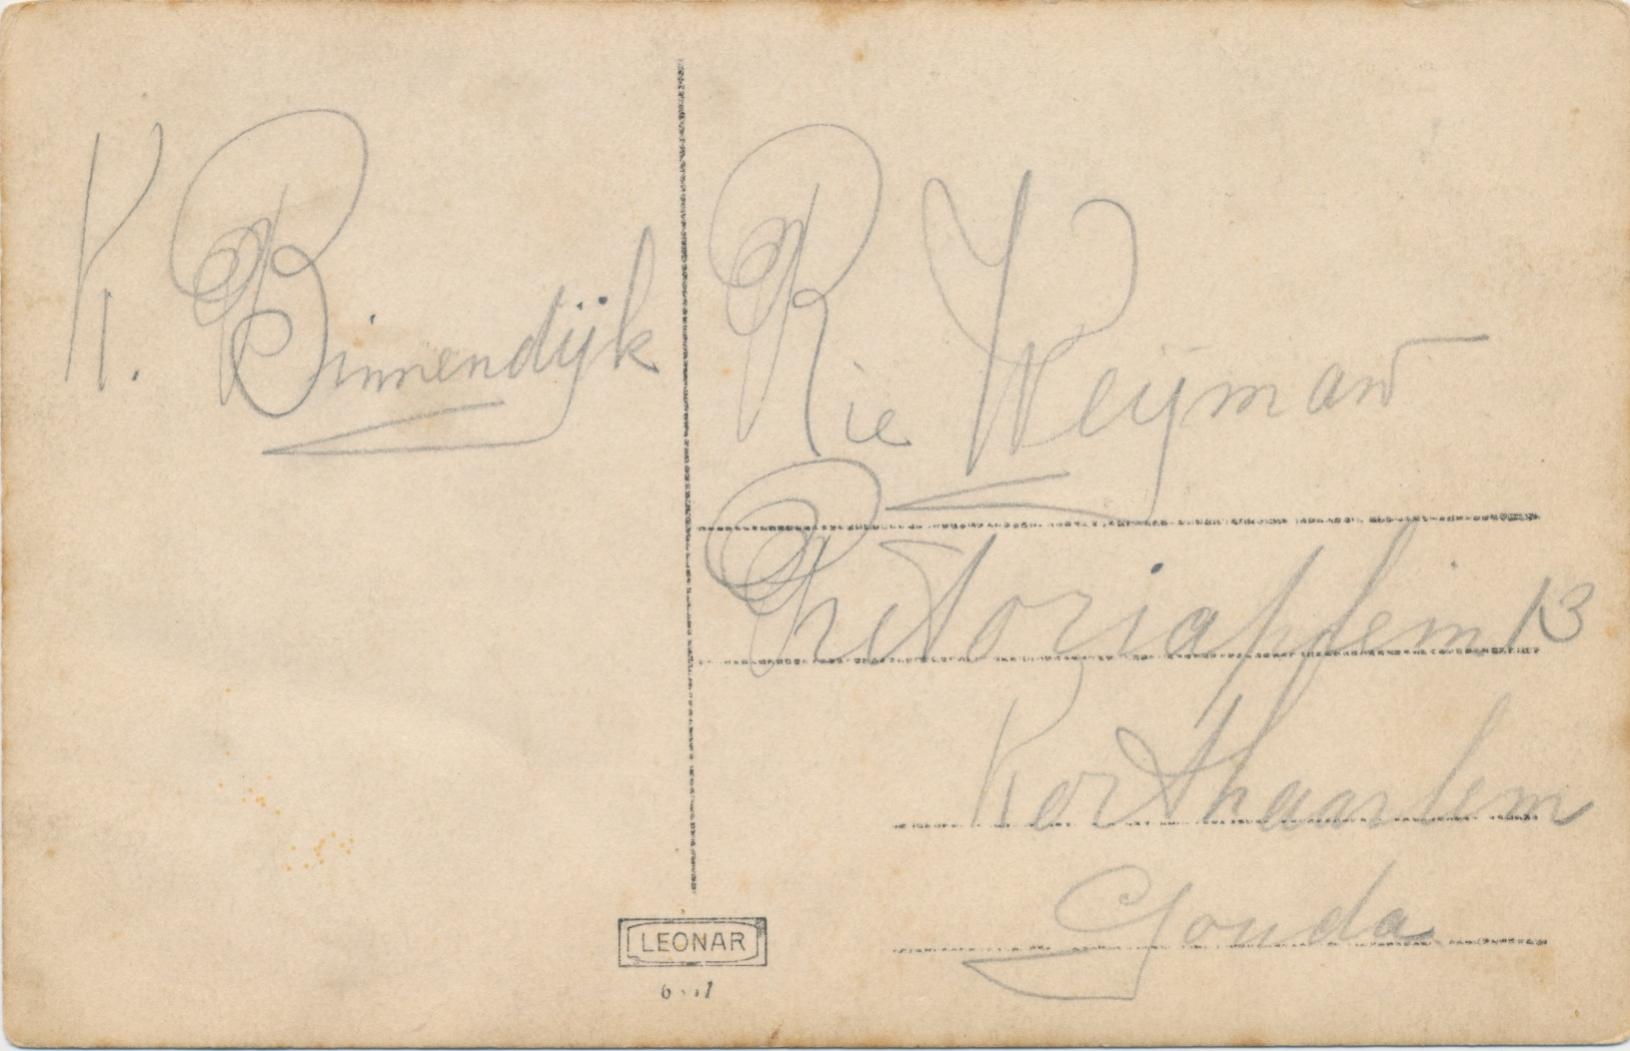 K. Binnendijk
Rie Weijman
Pretoriaplein 13
Korthaarlem
Gouda
LEONAR